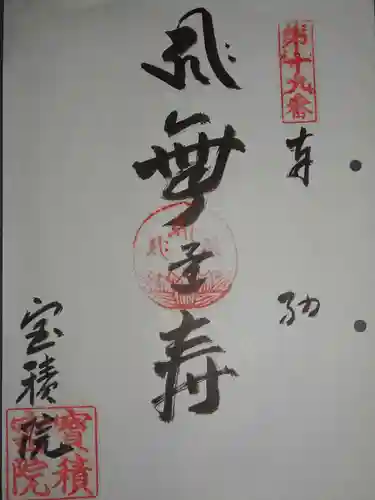 第十九番
奉
納
無量寿
宝積院
寶積
寳院